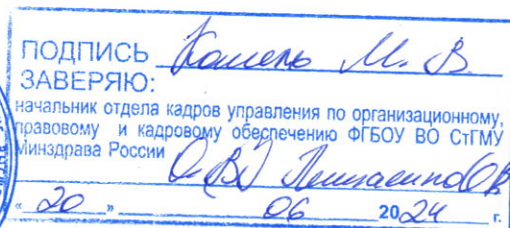 ПОДПИСЬ Кошель М. В.
ЗАВЕРЯЮ:
начальник отдела кадров управления по организационному,
правовому и кадровому обеспечению ФГБОУ ВО СтГМУ
Минздрава России
« 20 » 06 2024 г.